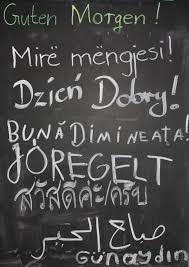 Guten Morgen!
Mirë mëngjesi!
Dzień Dobry!
BUNĂ DIMINEAȚA!
JÓREGELT
สวัสดีค่ะ/ครับ
صباح الخير
Günaydın